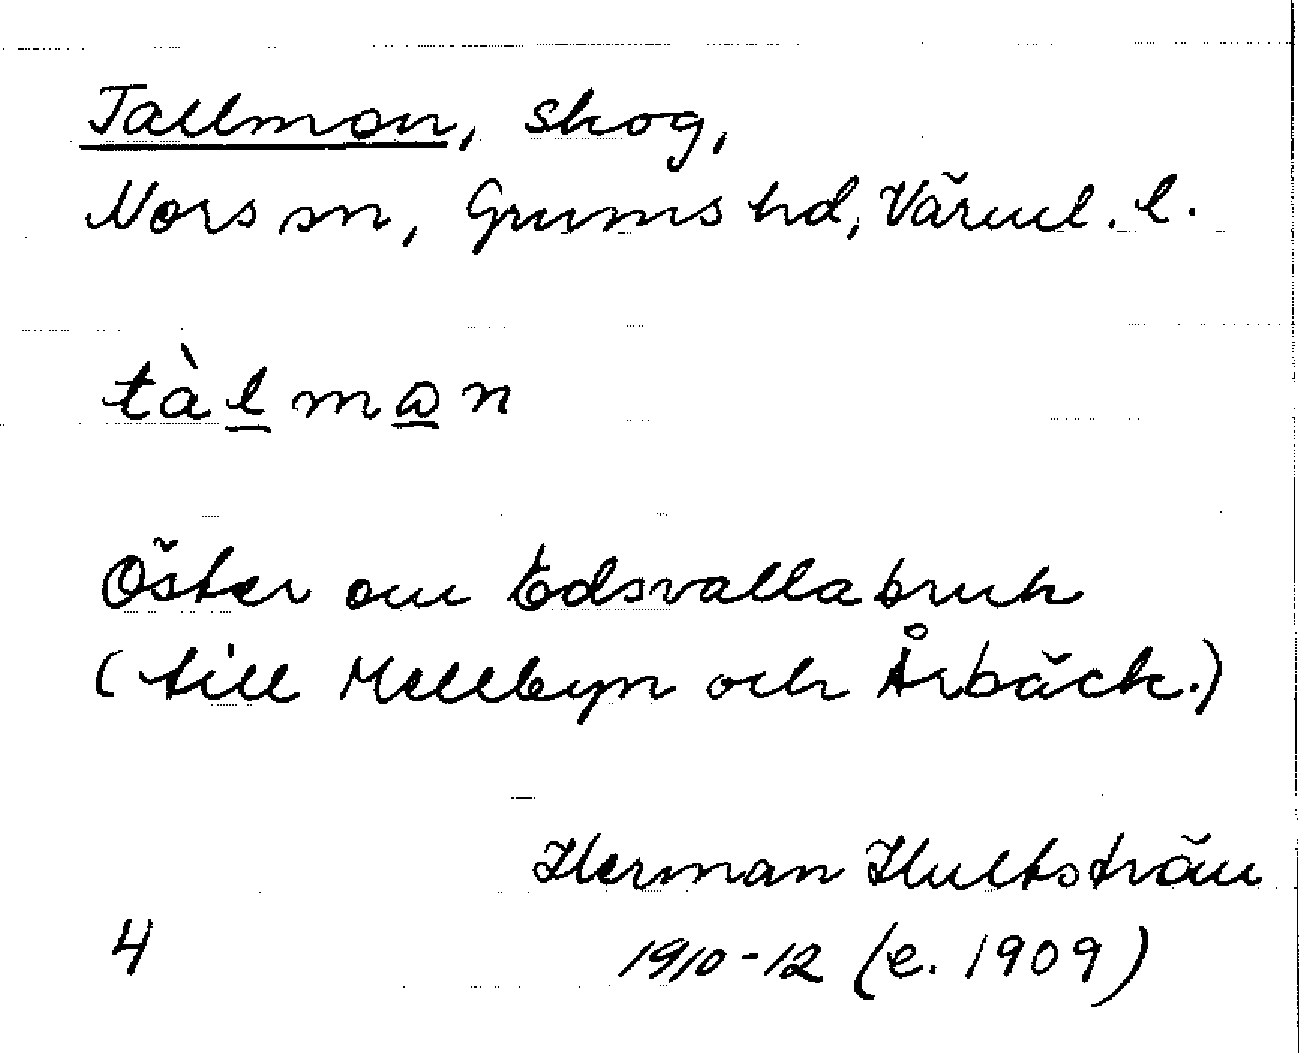 Tallmon, skog,
Nors sn, Grums hd, Värml. l.
tàlmωn
Öster om Edsvallabruk
(till Mellbyn och Årbäck.)
Herman Hultström
4 1910-12 (e. 1909)